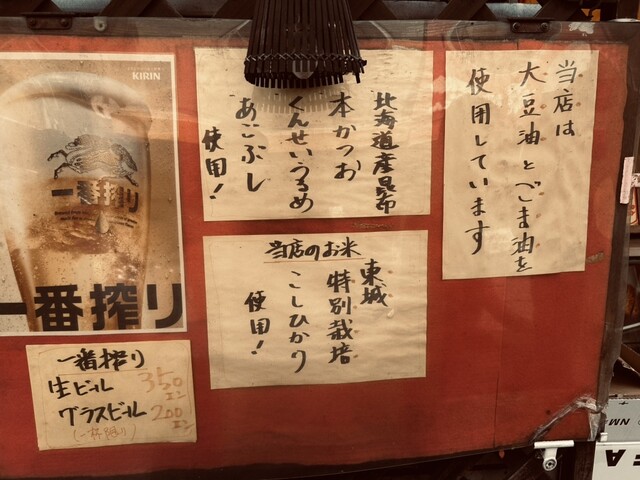 当店は
大豆油とごま油を
使用しています
北海道産昆布
本かつお
くんせいうるめ
あごぶし
使用!
当店のお米
東城
特別栽培
こしひかり
使用!
KIRIN
一番搾り
一番搾り
一番搾り
生ビール 350エン
グラスビール 200エン
NM